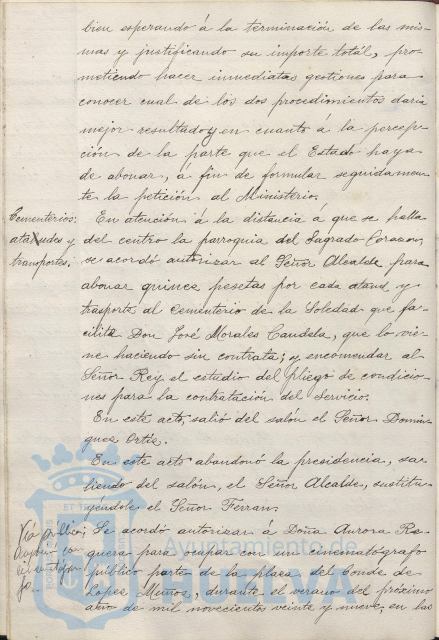 bien esperando á la terminación de las mis-
mas y justificando su importe total, pro-
metiendo hacer inmediatas gestiones para
conocer cual de los dos procedimientos daria
mejor resultado y en cuanto á la percep-
ción de la parte que el Estado haya
de abonar, a fin de formular seguidamen-
te la petición al Ministerio.
Cementerios:
ataudes y
transportes.
En atención á la distancia á que se halla
del centro la parroquia del Sagrado Corazon,
se acordó autorizar al Señor Alcalde para
abonar quince pesetas por cada ataud y
trasporte al Cementerio de la Soledad que fa-
cilita Don José Morales Candela, que lo vie-
ne haciendo sin contrata; y encomendar al
Señor Rey el estudio del pliego de condicio-
nes para la contratación del Servicio.
En este acto, salió del salón el Señor Domin-
guez Ortiz.
En este acto abandonó la presidencia, sa-
liendo del salón, el Señor Alcalde, sustitu-
yéndole el Señor Ferran.
Vía pública;
Se acordó autorizar á Doña Aurora Re-
quera para ocupar con un cinematógrafo
público parte de la plaza del Conde de
Lopez Muñoz, durante el verano del próximo
año de mil novecientos veinte y nueve, en las
Ayuntamiento de
HUELVA